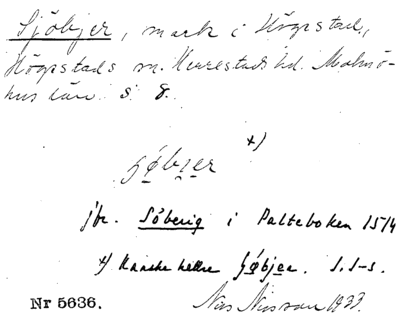 Sjöbjer, mark i Högestad,
Högestads sn. Herrestads hd. Malmö-
hus län. s. 8.
x)
jfr. Söberig i Palteboken 1514
x) Kanske hellre . I. I-s.
Nr 5636. Nils Nilsson 1933.